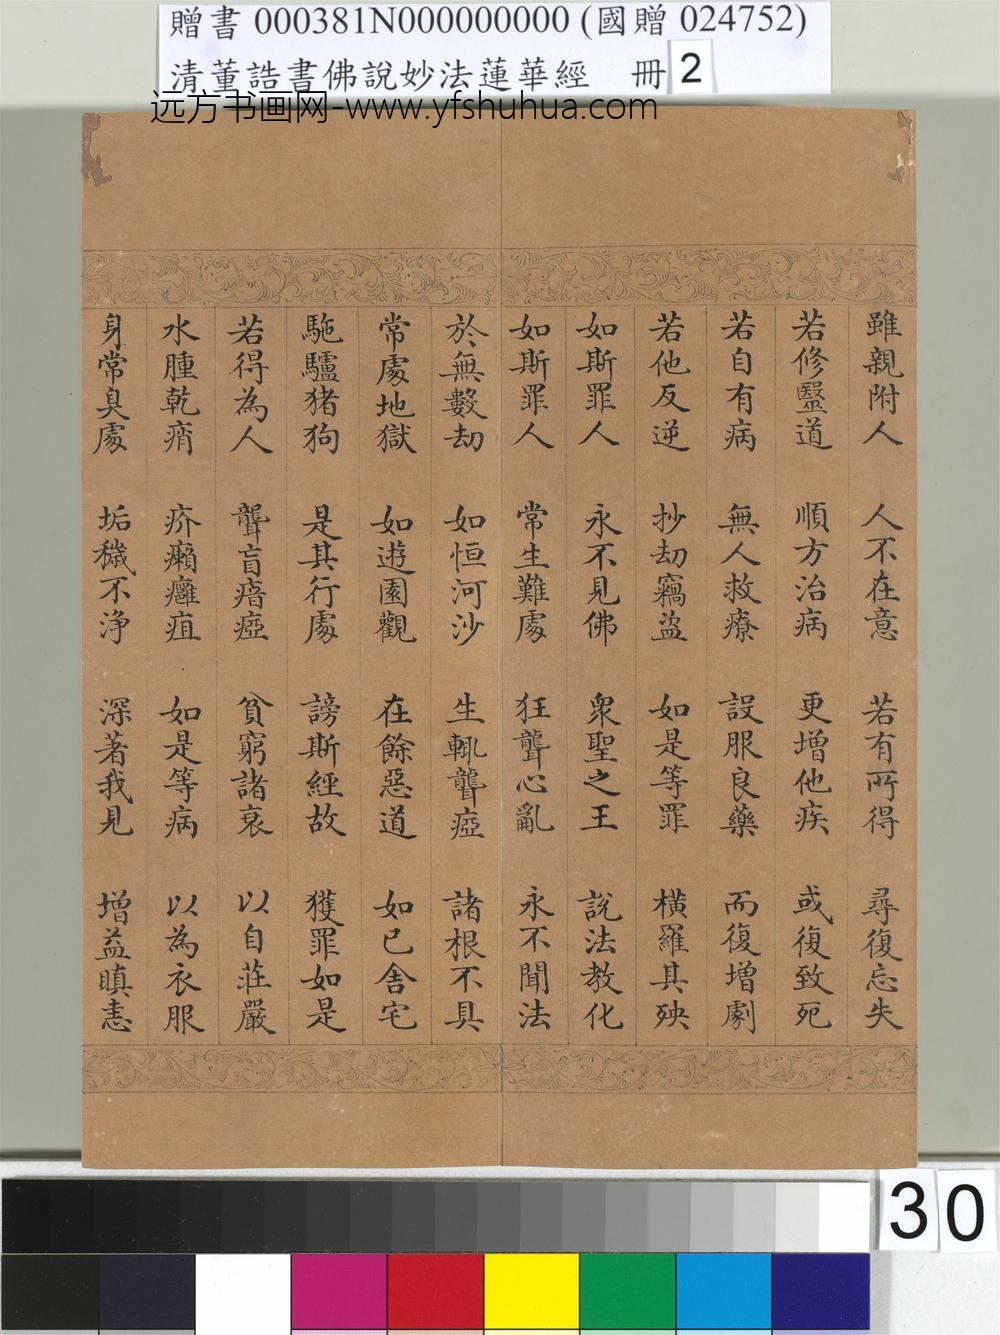 贈書 000381N000000000 (國贈 024752)
清董誥書佛說妙法蓮華經 冊 2
远方书画网-www.yfshuhua.com
雖親附人 人不在意 若有所得 尋復忘失
若修醫道 順方治病 更增他疾 或復致死
若自有病 無人救療 設服良藥 而復增劇
若他反逆 抄劫竊盜 如是等罪 橫羅其殃
如斯罪人 永不見佛 衆聖之王 說法教化
如斯罪人 常生難處 狂聾心亂 永不聞法
於無數劫 如恒河沙 生輒聾瘂 諸根不具
常處地獄 如遊園觀 在餘惡道 如己舍宅
駞驢猪狗 是其行處 謗斯經故 獲罪如是
若得為人 聾盲瘖瘂 貧窮諸衰 以自莊嚴
水腫乾痟 疥癩癰疽 如是等病 以為衣服
身常臭處 垢穢不淨 深著我見 增益瞋恚
30